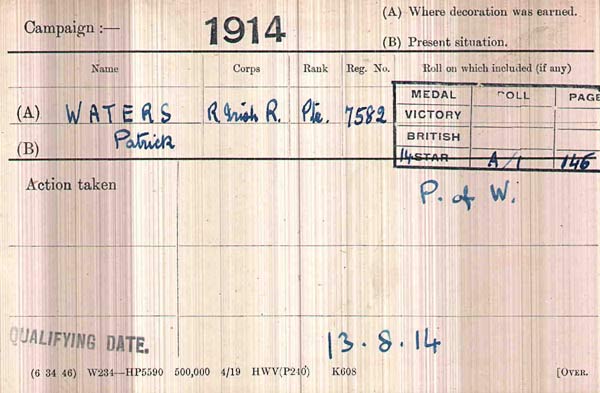 Campaign :—
1914
(A) Where decoration was earned.
(B) Present situation.
Name Corps Rank Reg. No. Roll on which included (if any)
MEDAL ROLL PAGE
VICTORY
BRITISH
14 STAR A/1 146
(A) WATERS R Irish R. Pte. 7582
(B) Patrick
Action taken
P. of W.
QUALIFYING DATE. 13.8.14
(6 34 46) W234—HP5590 500,000 4/19 HWV(P240) K608 [OVER.